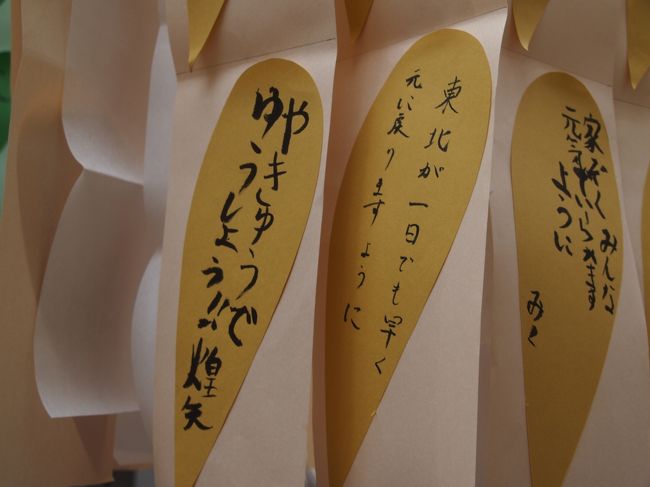 家ぞくみんな
元気でいられます
ように
みく
東北が一日でも早く
元に戻りますように
やきゅうで
ゆうしょう!!
煌矢